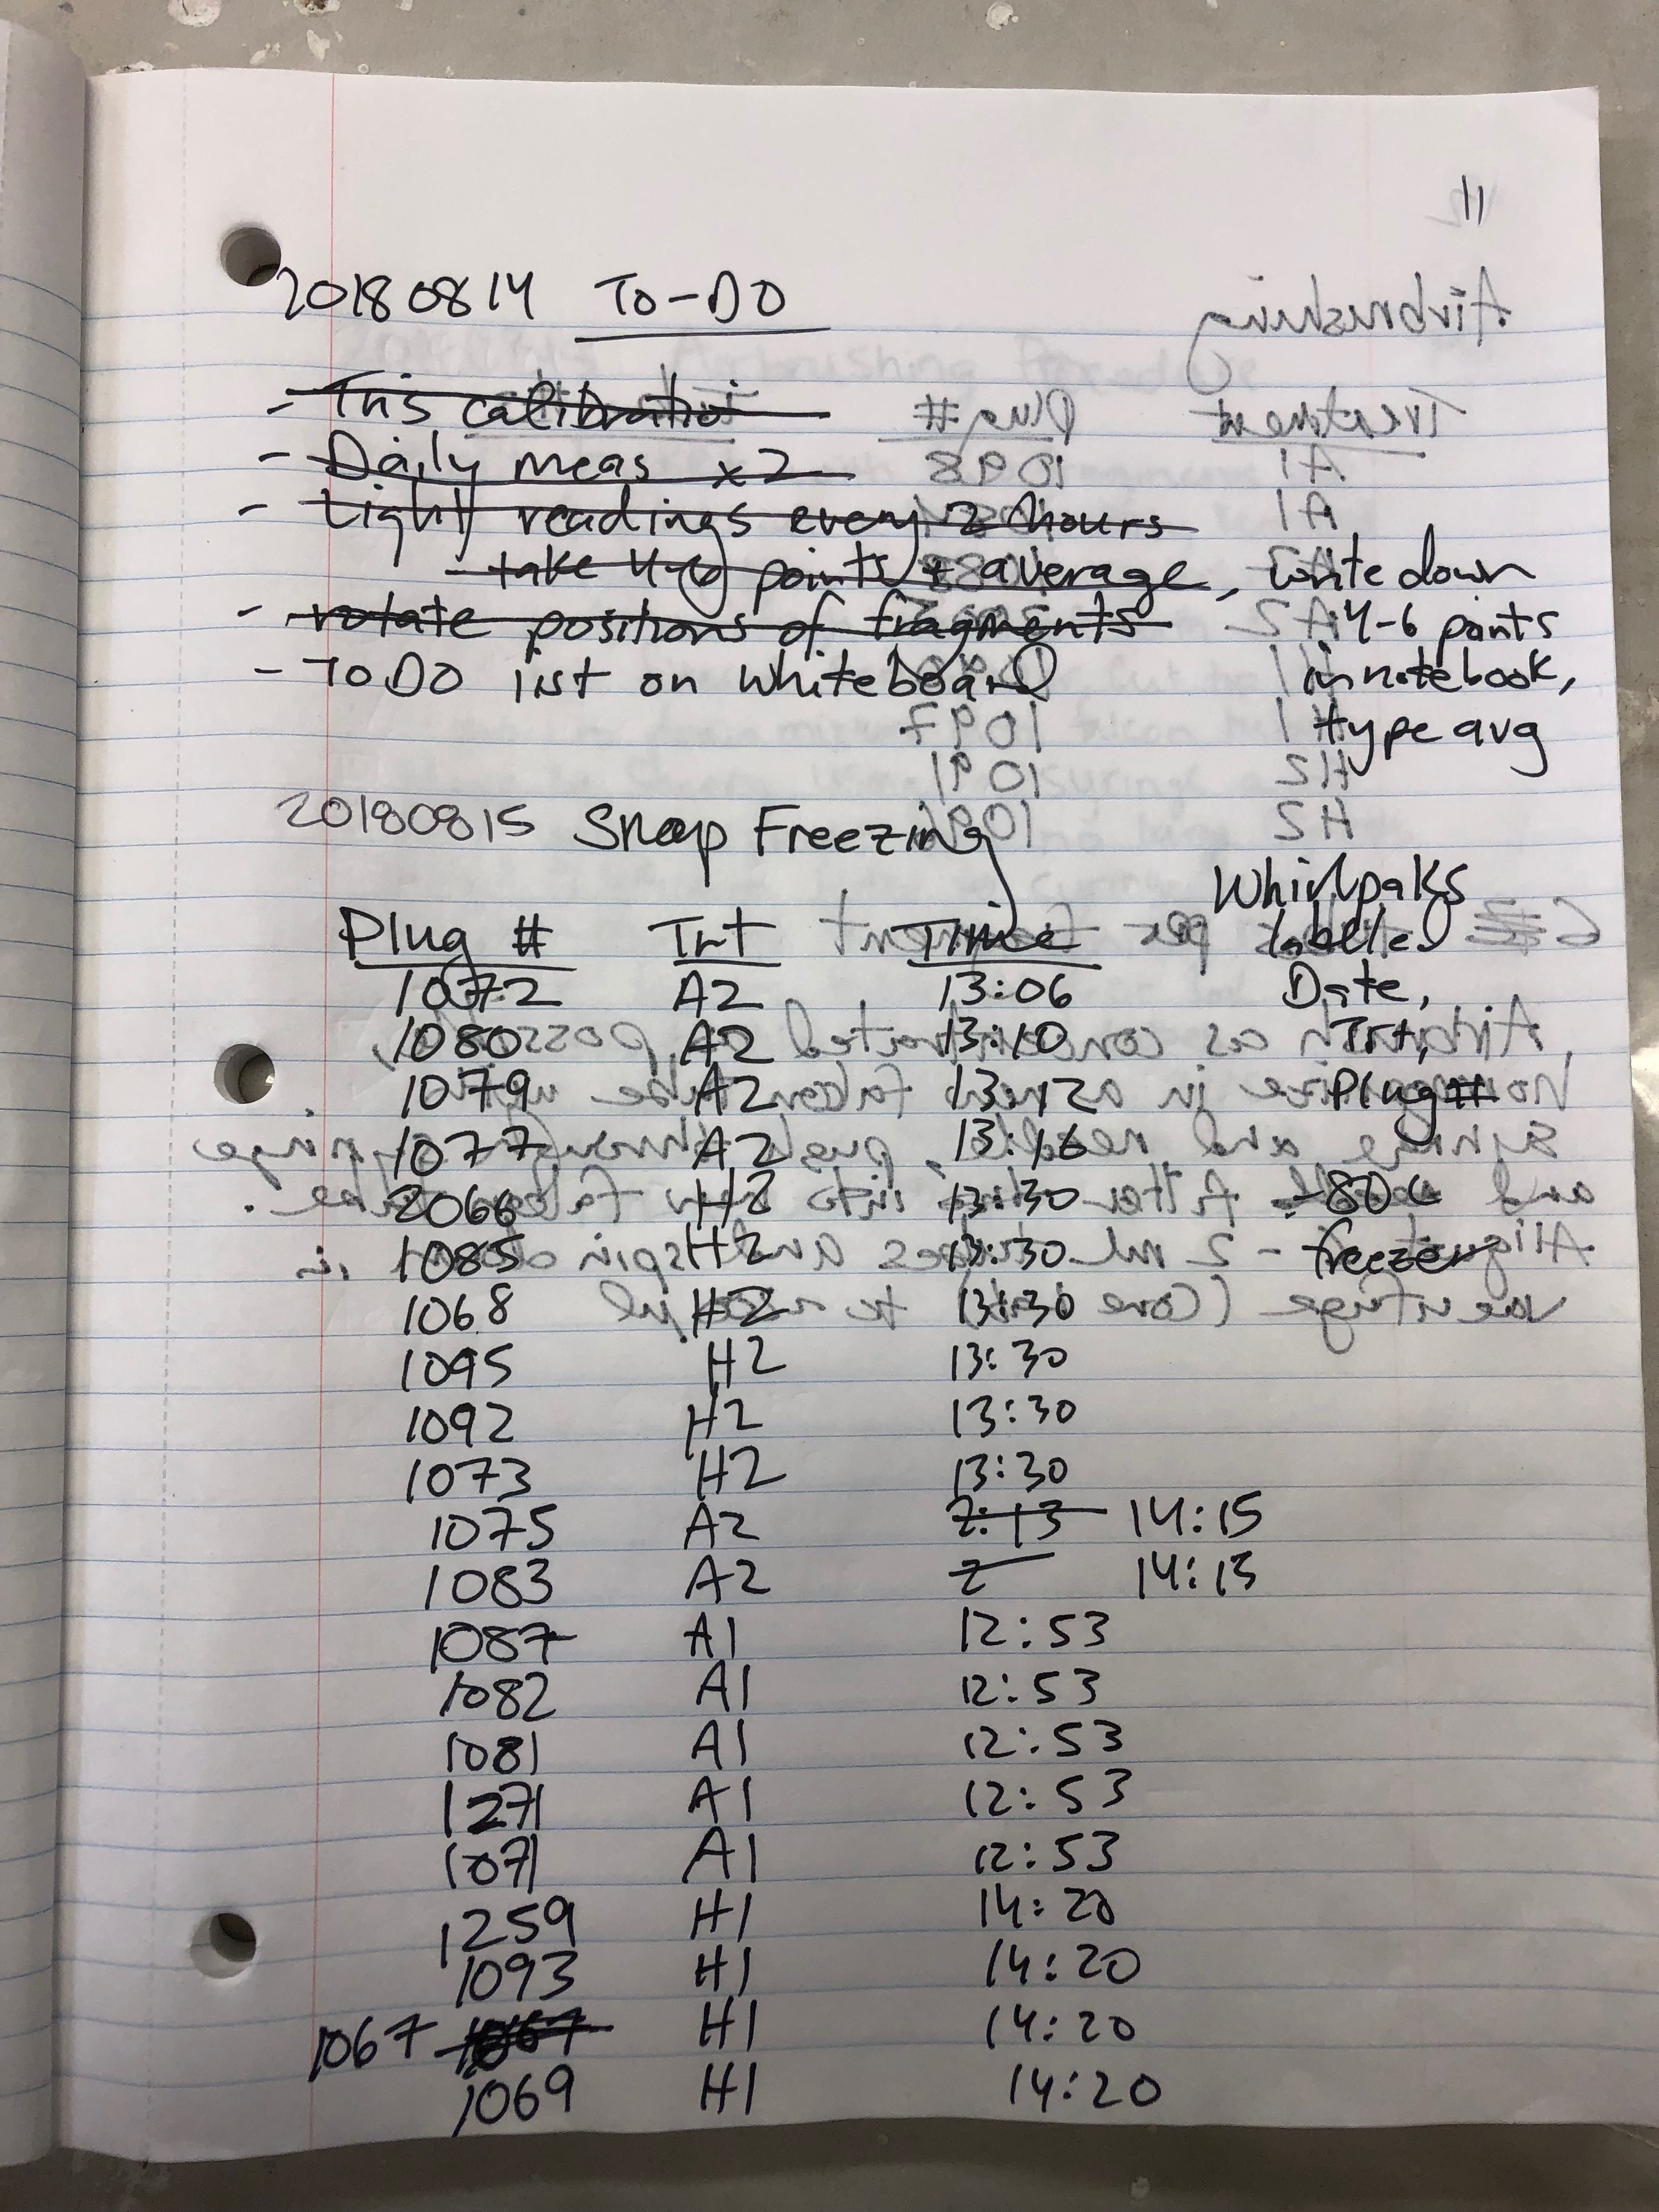 11
20180814 To-DO
- Tris calibration
- Daily meas x2
- Light readings every 2 hours
- take 4-6 points + average, write down
4-6 points
in notebook,
type avg
- rotate positions of fragments
- To DO list on whiteboard
20180815 Snap Freezing
Whirlpaks
labelled
Date,
Trt,
Plug #
-80 C
freezer
Plug # Trt Time
1072 A2 13:06
1080 A2 13:10
1079 A2 13:12
1077 A2 13:16
2066 H2 13:30
1085 H2 13:30
1068 H2 13:30
1095 H2 13:30
1092 H2 13:30
1073 H2 13:30
1075 A2 2:13 14:15
1083 A2 2 14:15
1087 A1 12:53
1082 A1 12:53
1081 A1 12:53
1271 A1 12:53
1071 A1 12:53
1259 H1 14:20
1093 H1 14:20
1067 1067 H1 14:20
1069 H1 14:20